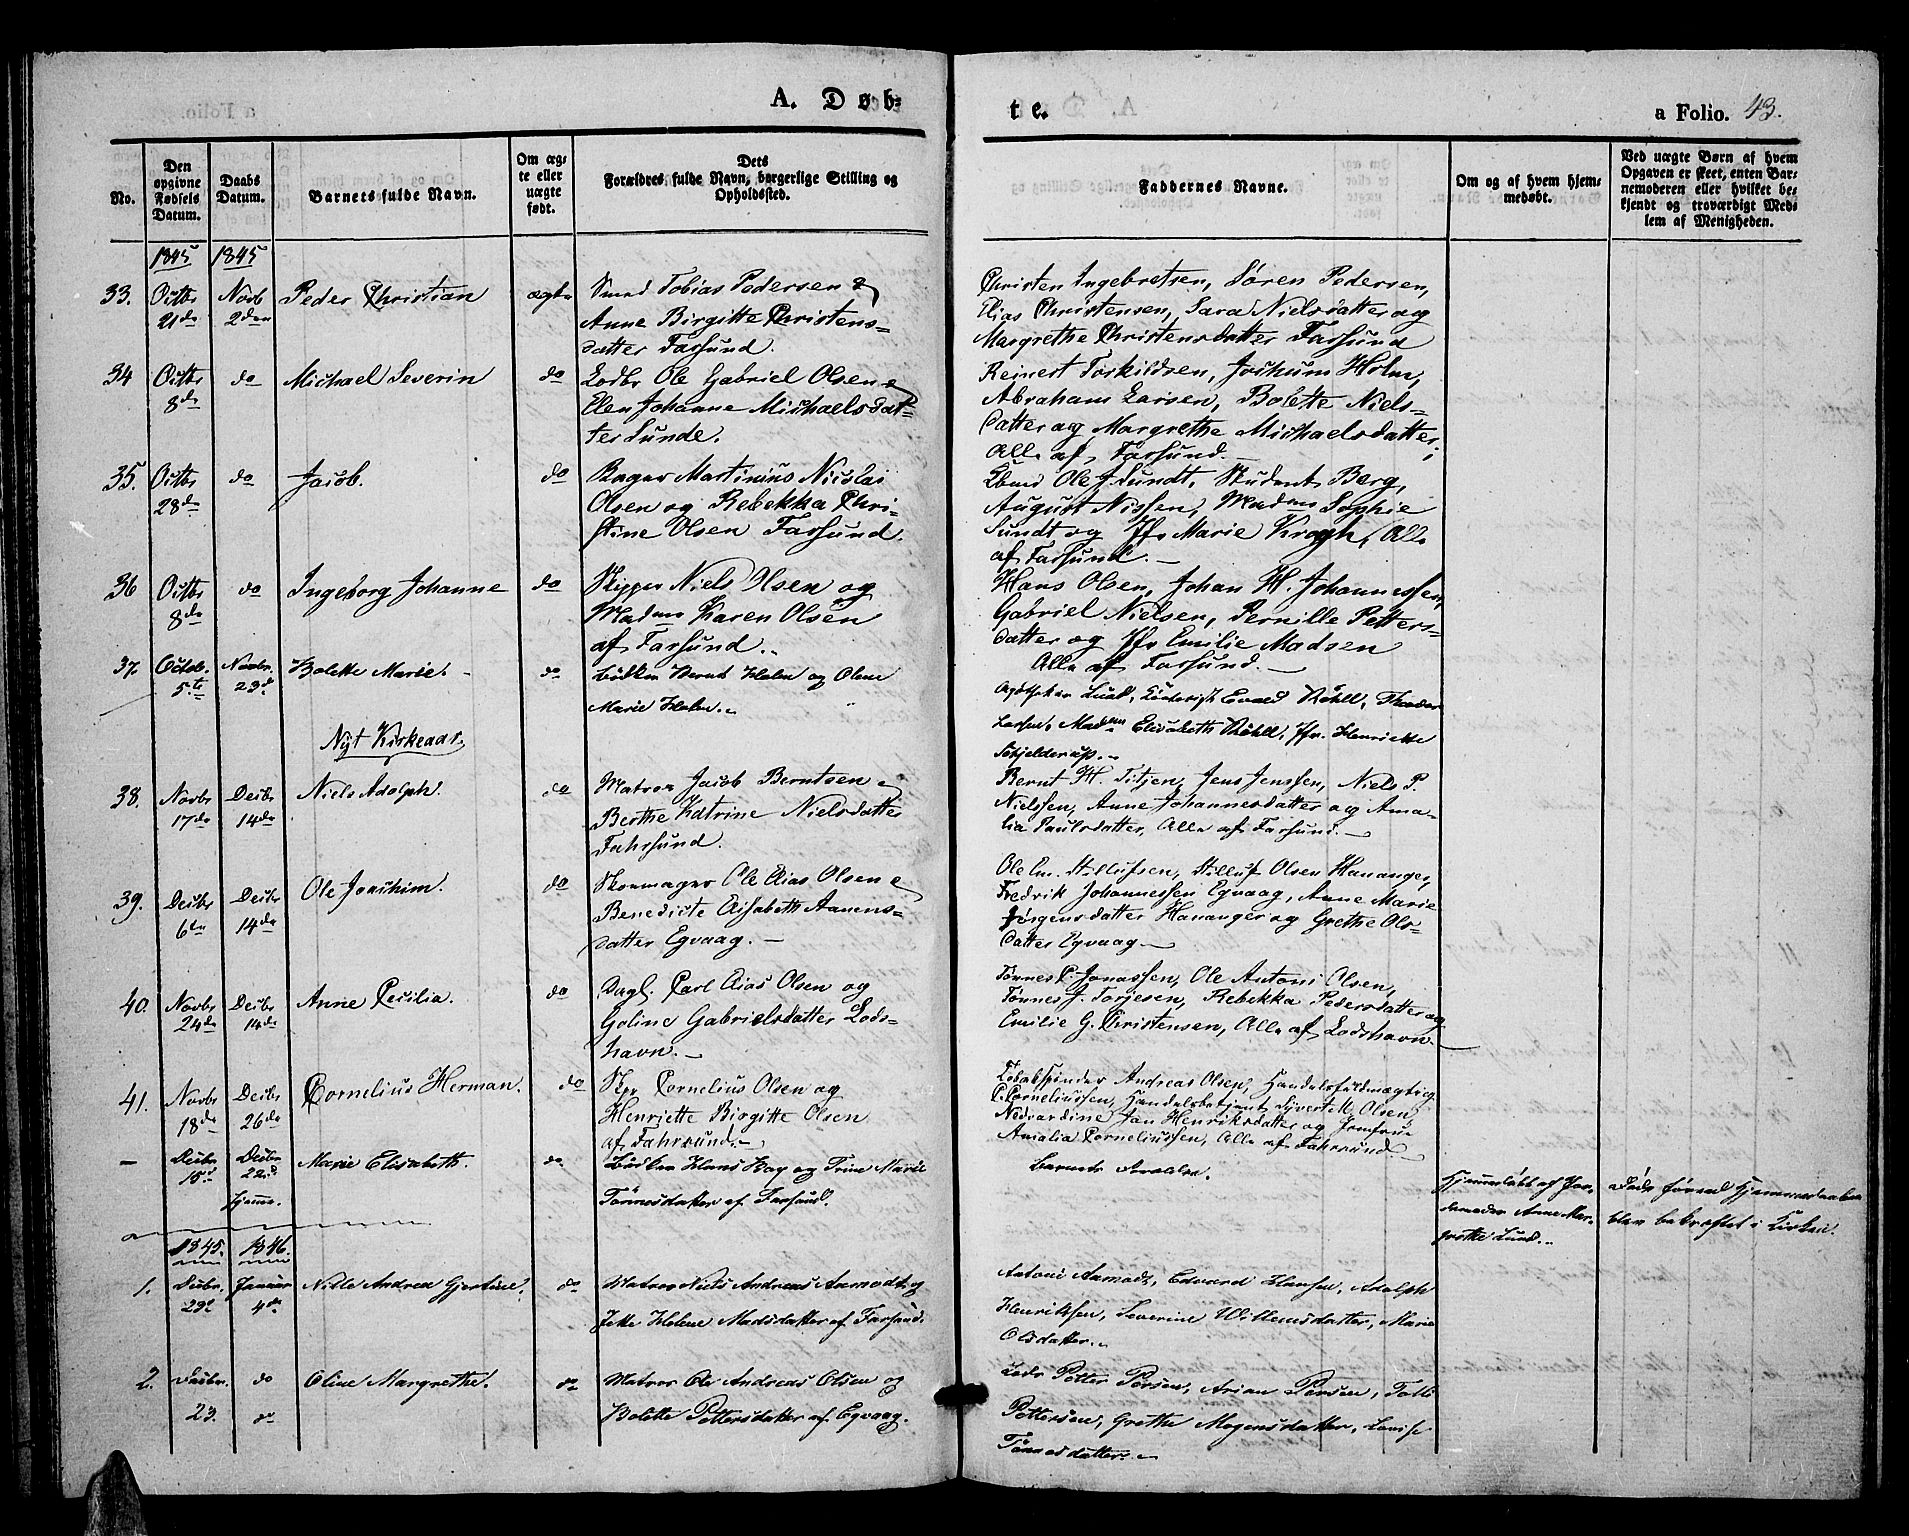 A. Døb-
te.
a Folio. 43.
No.
Den opgivne Fødsels Datum.
Daabs Datum.
Barnets fulde Navn.
Om ægte eller uægte født.
Dets Forældres fulde Navn, borgerlige Stilling og Opholdssted.
Faddernes Navne.
Om og af hvem hjemmedøbt.
Ved uægte Børn af hvem
Opgaven er skeet, enten Bar-
nemoderen eller hvilket be-
kjendt og troværdigt Med-
lem af Menigheden.
1845 1845
33. Octbr 21de Novb 2den Peder Christian ægte
Smed Tobias Pedersen &
Anne Birgitte Christens-
datter Farsund.
Christen Ingebretsen, Søren Pedersen,
Elias Christensen, Sara Nielsdatter og
Margrethe Christensdatter Farsund
34 Octbr 8de do Michael Severin do
Lodbr Ole Gabriel Olsen &
Elen Johanne Michaelsdat-
ter Lunde.
Reinert Torkildsen, Jochum Holm,
Abraham Larsen, Bolette Niels-
datter og Margrethe Michaelsdatter,
Alle af Farsund.
35. Octbr 28de do Jacob. do
Bager Martinius Nicolai
Olsen og Rebekka Chri-
stine Olsen Farsund.
Ole J. Sundt, Student Berg,
August Nissen, Madme Sophie
Sundt og Jfr Marie Krogh, Alle
af Farsund.
36 Octbr 8de do Ingeborg Johanne do
Skipper Niels Olsen og
Madme Karen Olsen
af Farsund.
Hans Olsen, Johan H. Johannessen,
Gabriel Nielsen, Pernille Petters-
datter og Jfr Emilie Madsen
Alle af Farsund.
37. Octob. 5.te Novbr. 23d Bolette Marie. do
Bødker Bernt Holm og Olene
Marie Holm.
Apotheker Lund, Evald Røhll, Theodor
Larsen, Madme Elisabeth Røhll, Jfr. Henriette
Schjelderup.
Nyt Kirkeaar.
38. Novbr 17de Decbr 14de Niels Adolph. do
Matros Jacob Berntsen &
Berthe Katrine Nielsdatter
Fahrsund.
Bernt H. Titjen, Jens Jenssen, Niels P.
Nielssen, Anne Johannesdatter og Ama-
lia Paulsdatter, Alle af Farsund.
39. Decbr 6te Decbr 14de Ole Joachim. do
Skomager Ole Elias Olsen &
Benedicte Elisabeth Aanens-
datter Egvaag.
Ole Em. Stillufsen, Stilluf Olsen Hananger,
Fredrik Johannessen Egvaag, Anne Marie
Jørgensdatter Hananger og Grethe Ols-
datter Egvaag
40. Novbr 24de Decbr 14de Anne Cecilia. do
Dagl. Carl Elias Olsen og
Goline Gabrielsdatter Lods-
havn.
Tønnes C. Jonassen, Ole Antoni Olsen,
Tønnes J. Torjesen, Rebekka Pedersdatter og
Emilie G. Christensen, Alle af Lodshavn
41. Novbr 18de Decbr 26de Cornelius Herman. do
Skpr Cornelius Olsen og
Henriette Birgitte Olsen
af Fahrsund.
Tobakspinder Andreas Olsen, Handelsfuldmægtig
C. Corneliussen, Handelsbetjent Syvert M. Olsen,
Nedvardine Jan Henriksdatter og Jomfrue
Amalia Corneliussen, Alle af Fahrsund
— Decbr 15d Decbr 22d hjemme. Marie Elisabeth. do
Bødker Hans Hoy og Trine Marie
Tønnesdatter af Farsund.
Barnets Forældre.
Hjemmedøbt af Jor-
demoder Anne Mar-
grethe Lund.
Døde førend Hjemmedaaben
blev bekræftet i Kirken.
1845. 1846.
1. Decbr. 29d Januar 4de Nille Andrea Gjertine. do
Matros Niels Andreas Aamodt og
Jette Helene Madsdatter af Farsund.
Antoni Aamodt, Edvard Hansen, Adolph
Henriksen, Severine Willumsdatter, Marie
Olsdatter.
2. Decbr. 23. do do Oline Margrethe. do
Matros Ole Andreas Olsen og
Bolette Pettersdatter af Egvaag.
Lods Petter Persen, Arian Persen, Tolli
Pettersen, Grethe Mogensdatter, Lovise
Tønnesdatter.